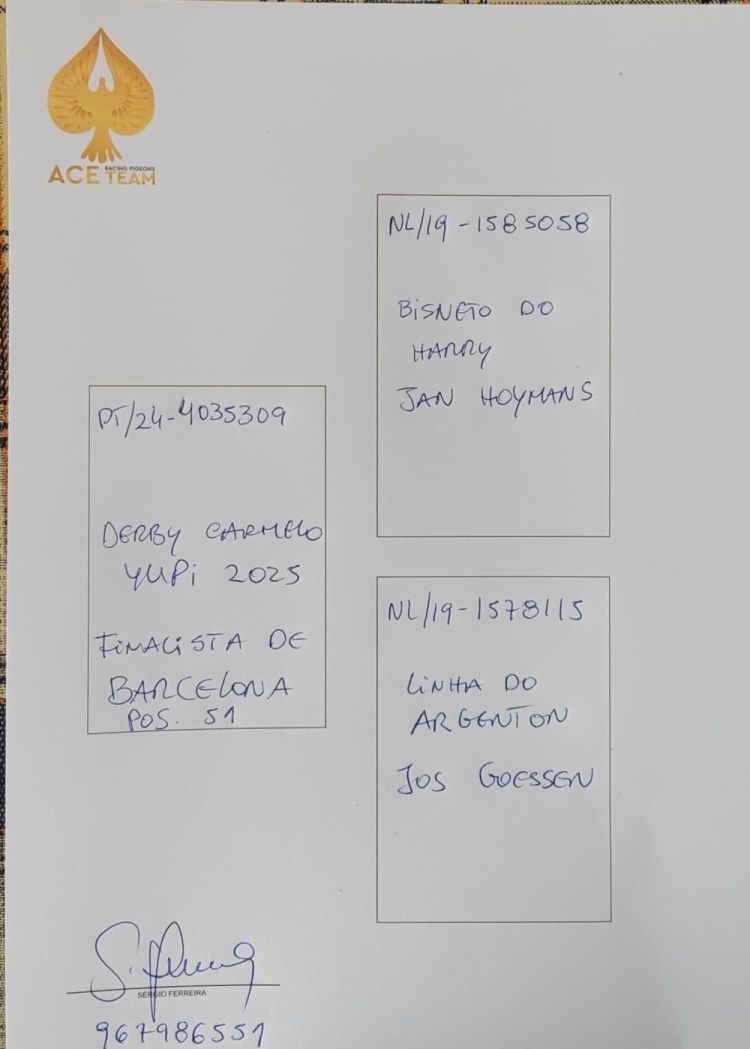 RACING PIGEONS
ACE TEAM
NL/19-1585058
BISNETO DO
HARRY
JAN HOYMANS
PT/24-4035309
DERBY CARMELO
YUPI 2025
FINALISTA DE
BARCELONA
POS. 51
NL/19-1578115
LINHA DO
ARGENTON
JOS GOESSEN
SÉRGIO FERREIRA
967986551